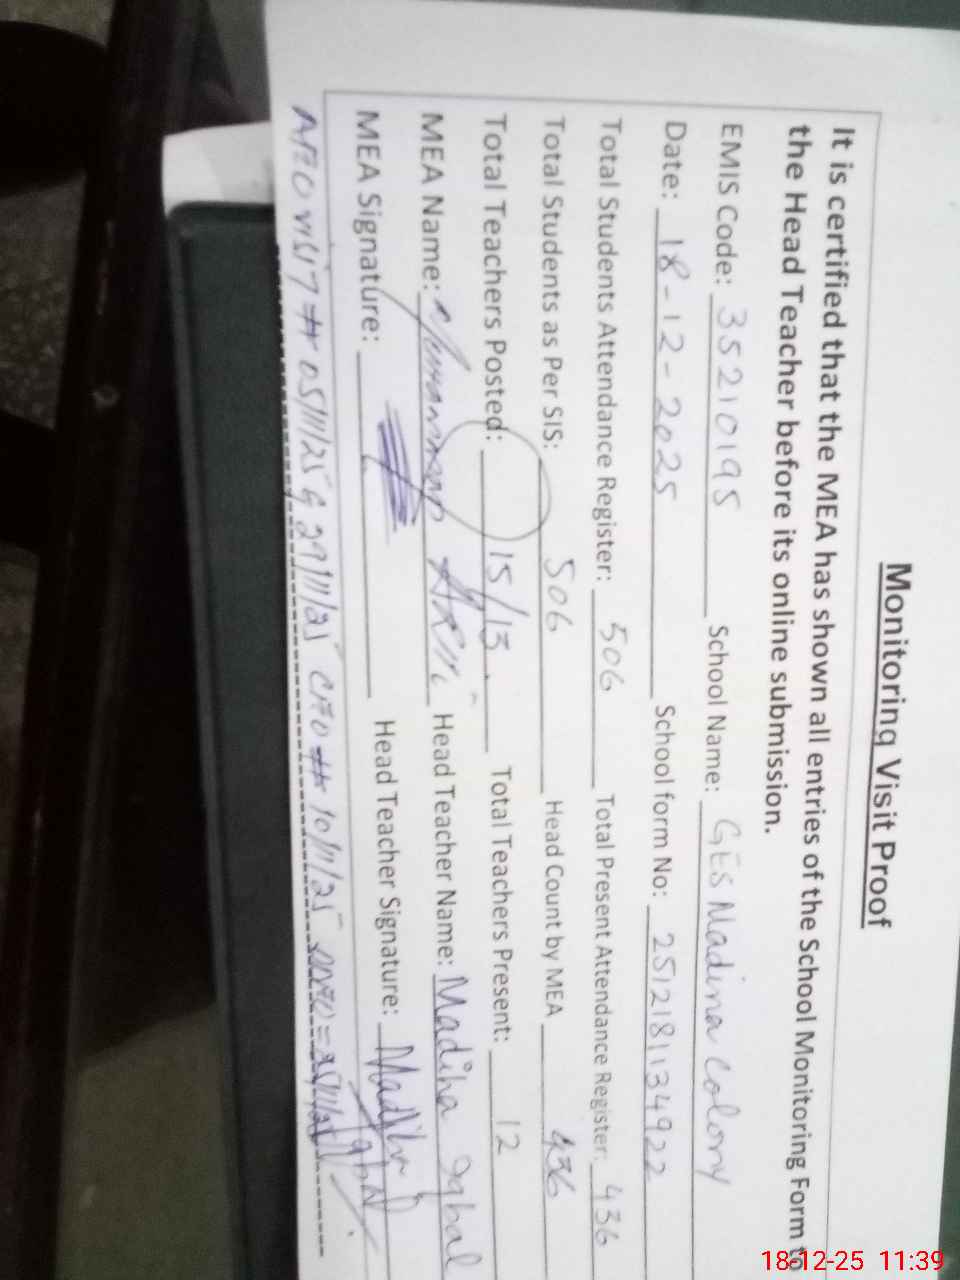 Monitoring Visit Proof
It is certified that the MEA has shown all entries of the School Monitoring Form to
the Head Teacher before its online submission.
EMIS Code: 35210195 School Name: GES Madina Colony
Date: 18-12-2025 School form No: 2512181134922
Total Students Attendance Register: 506 Total Present Attendance Register: 436
Total Students as Per SIS: 506 Head Count by MEA 436
Total Teachers Posted: 15/13 Total Teachers Present: 12
MEA Name: Muhammad Head Teacher Name: Madiha Iqbal
MEA Signature: Head Teacher Signature: Madiha Iqbal
AEO visit # 05/11/25 & 29/11/25 10/11/25
18-12-25 11:39